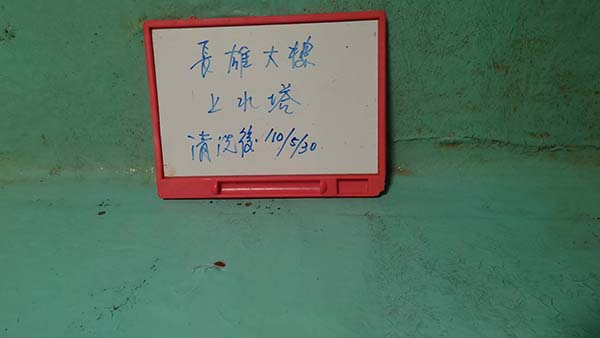 長雄大樓
上水塔
清洗後 110/5/30